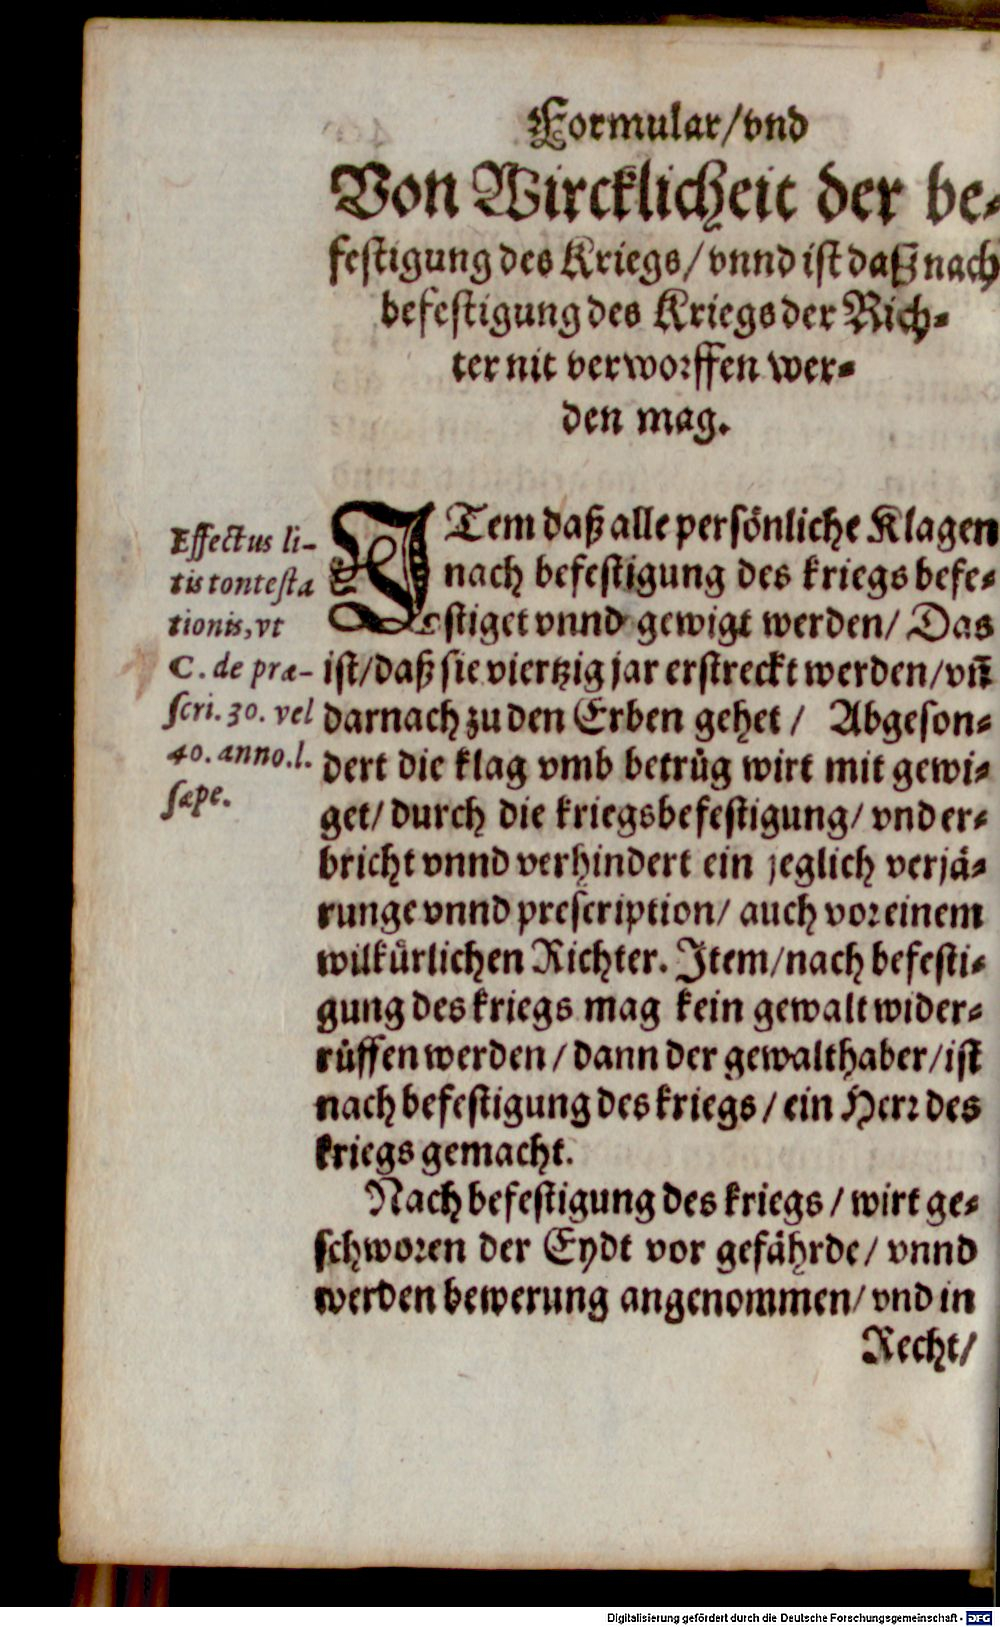 Formular/vnd
Von Wircklicheit der be-
festigung des Kriegs/vnnd ist daß nach
befestigung des Kriegs der Rich-
ter nit verworffen wer-
den mag.
Effectus li-
tis tontesta
tionis, vt
C. de præ-
scri. 30. vel
40. anno. l.
sæpe.
ITem daß alle persönliche Klagen
nach befestigung des kriegs befe-
stiget vnnd gewigt werden/ Das
ist/daß sie viertzig jar erstreckt werden/vñ
darnach zu den Erben gehet / Abgeson-
dert die klag vmb betrüg wirt mit gewi-
get/ durch die kriegsbefestigung/ vnd er-
bricht vnnd verhindert ein jeglich verjä-
runge vnnd prescription/ auch vor einem
wilkürlichen Richter. Item/nach befesti-
gung des kriegs mag kein gewalt wider-
rüffen werden / dann der gewalthaber/ist
nach befestigung des kriegs / ein Herr des
kriegs gemacht.
Nach befestigung des kriegs / wirt ge-
schworen der Eydt vor gefährde/ vnnd
werden bewerung angenommen/ vnd in
Recht/
Digitalisierung gefördert durch die Deutsche Forschungsgemeinschaft - DFG